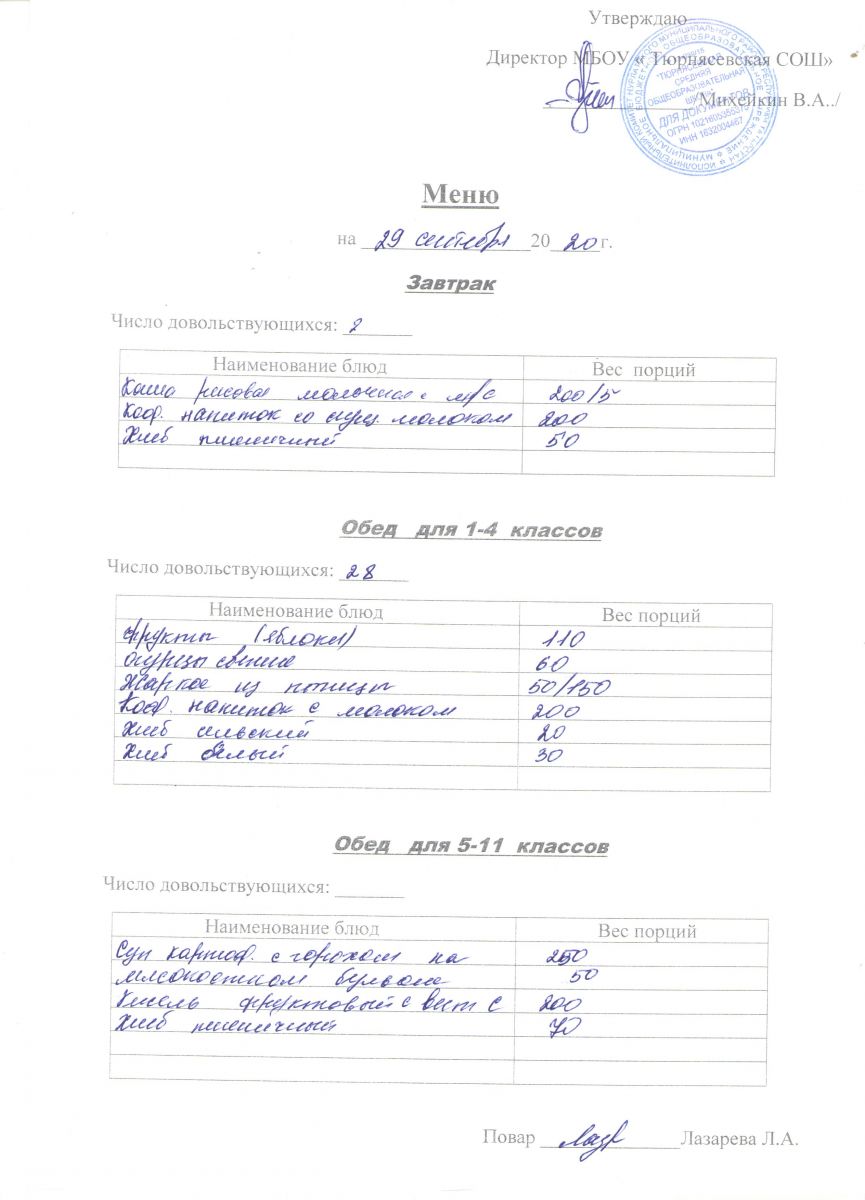 Утверждаю
Директор МБОУ « Тюрнясевская СОШ»
Михейкин В.А../
"ТЮРНЯСЕВСКАЯ
СРЕДНЯЯ
ОБЩЕОБРАЗОВАТЕЛЬНАЯ
ШКОЛА"
ДЛЯ ДОКУМЕНТОВ
ИНН 1632004467
Меню
на 29 сентября 20 20 г.
Завтрак
Число довольствующихся:
Наименование блюд Вес порций
Каша рисовая молочная с м/с 200/5
Коф. напиток со сгущ. молоком 200
Хлеб пшеничный 50
Обед для 1-4 классов
Число довольствующихся: 28
Наименование блюд Вес порций
Фрукты (яблоки) 110
огурцы свежие 60
Жаркое из птицы 50/150
Коф. напиток с молоком 200
Хлеб сельский 20
Хлеб белый 30
Обед для 5-11 классов
Число довольствующихся:
Наименование блюд Вес порций
Суп картоф. с горохом на 250
мясокостном бульоне 50
Кисель фруктовый с вит С 200
Хлеб пшеничный 70
Повар Лазарева Л.А.